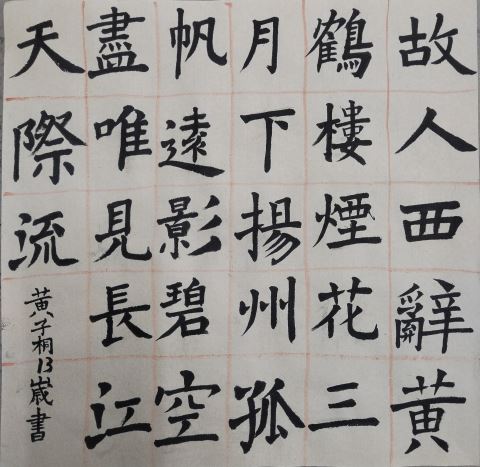 故人西辭黃
鶴樓煙花三
月下揚州孤
帆遠影碧空
盡唯見長江
天際流
黃子桐13歲書